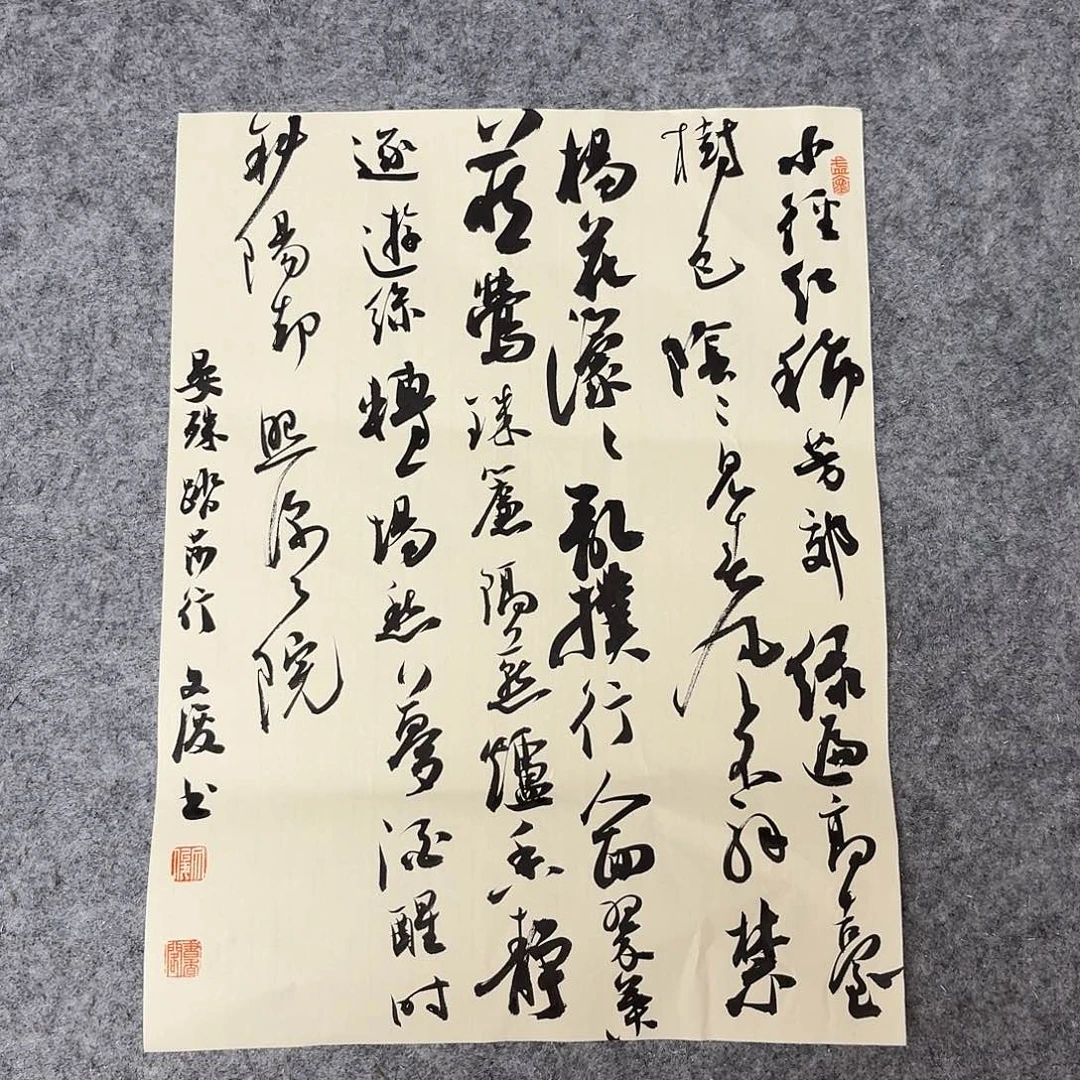 小徑紅稀芳郊綠遍高臺
樹色陰〻見春風不解禁
楊花濛〻亂撲行人面翠葉
藏鶯珠簾隔燕爐香靜
逐遊絲轉一場愁夢酒醒时
斜陽却照深〻院
晏殊踏莎行 文 书